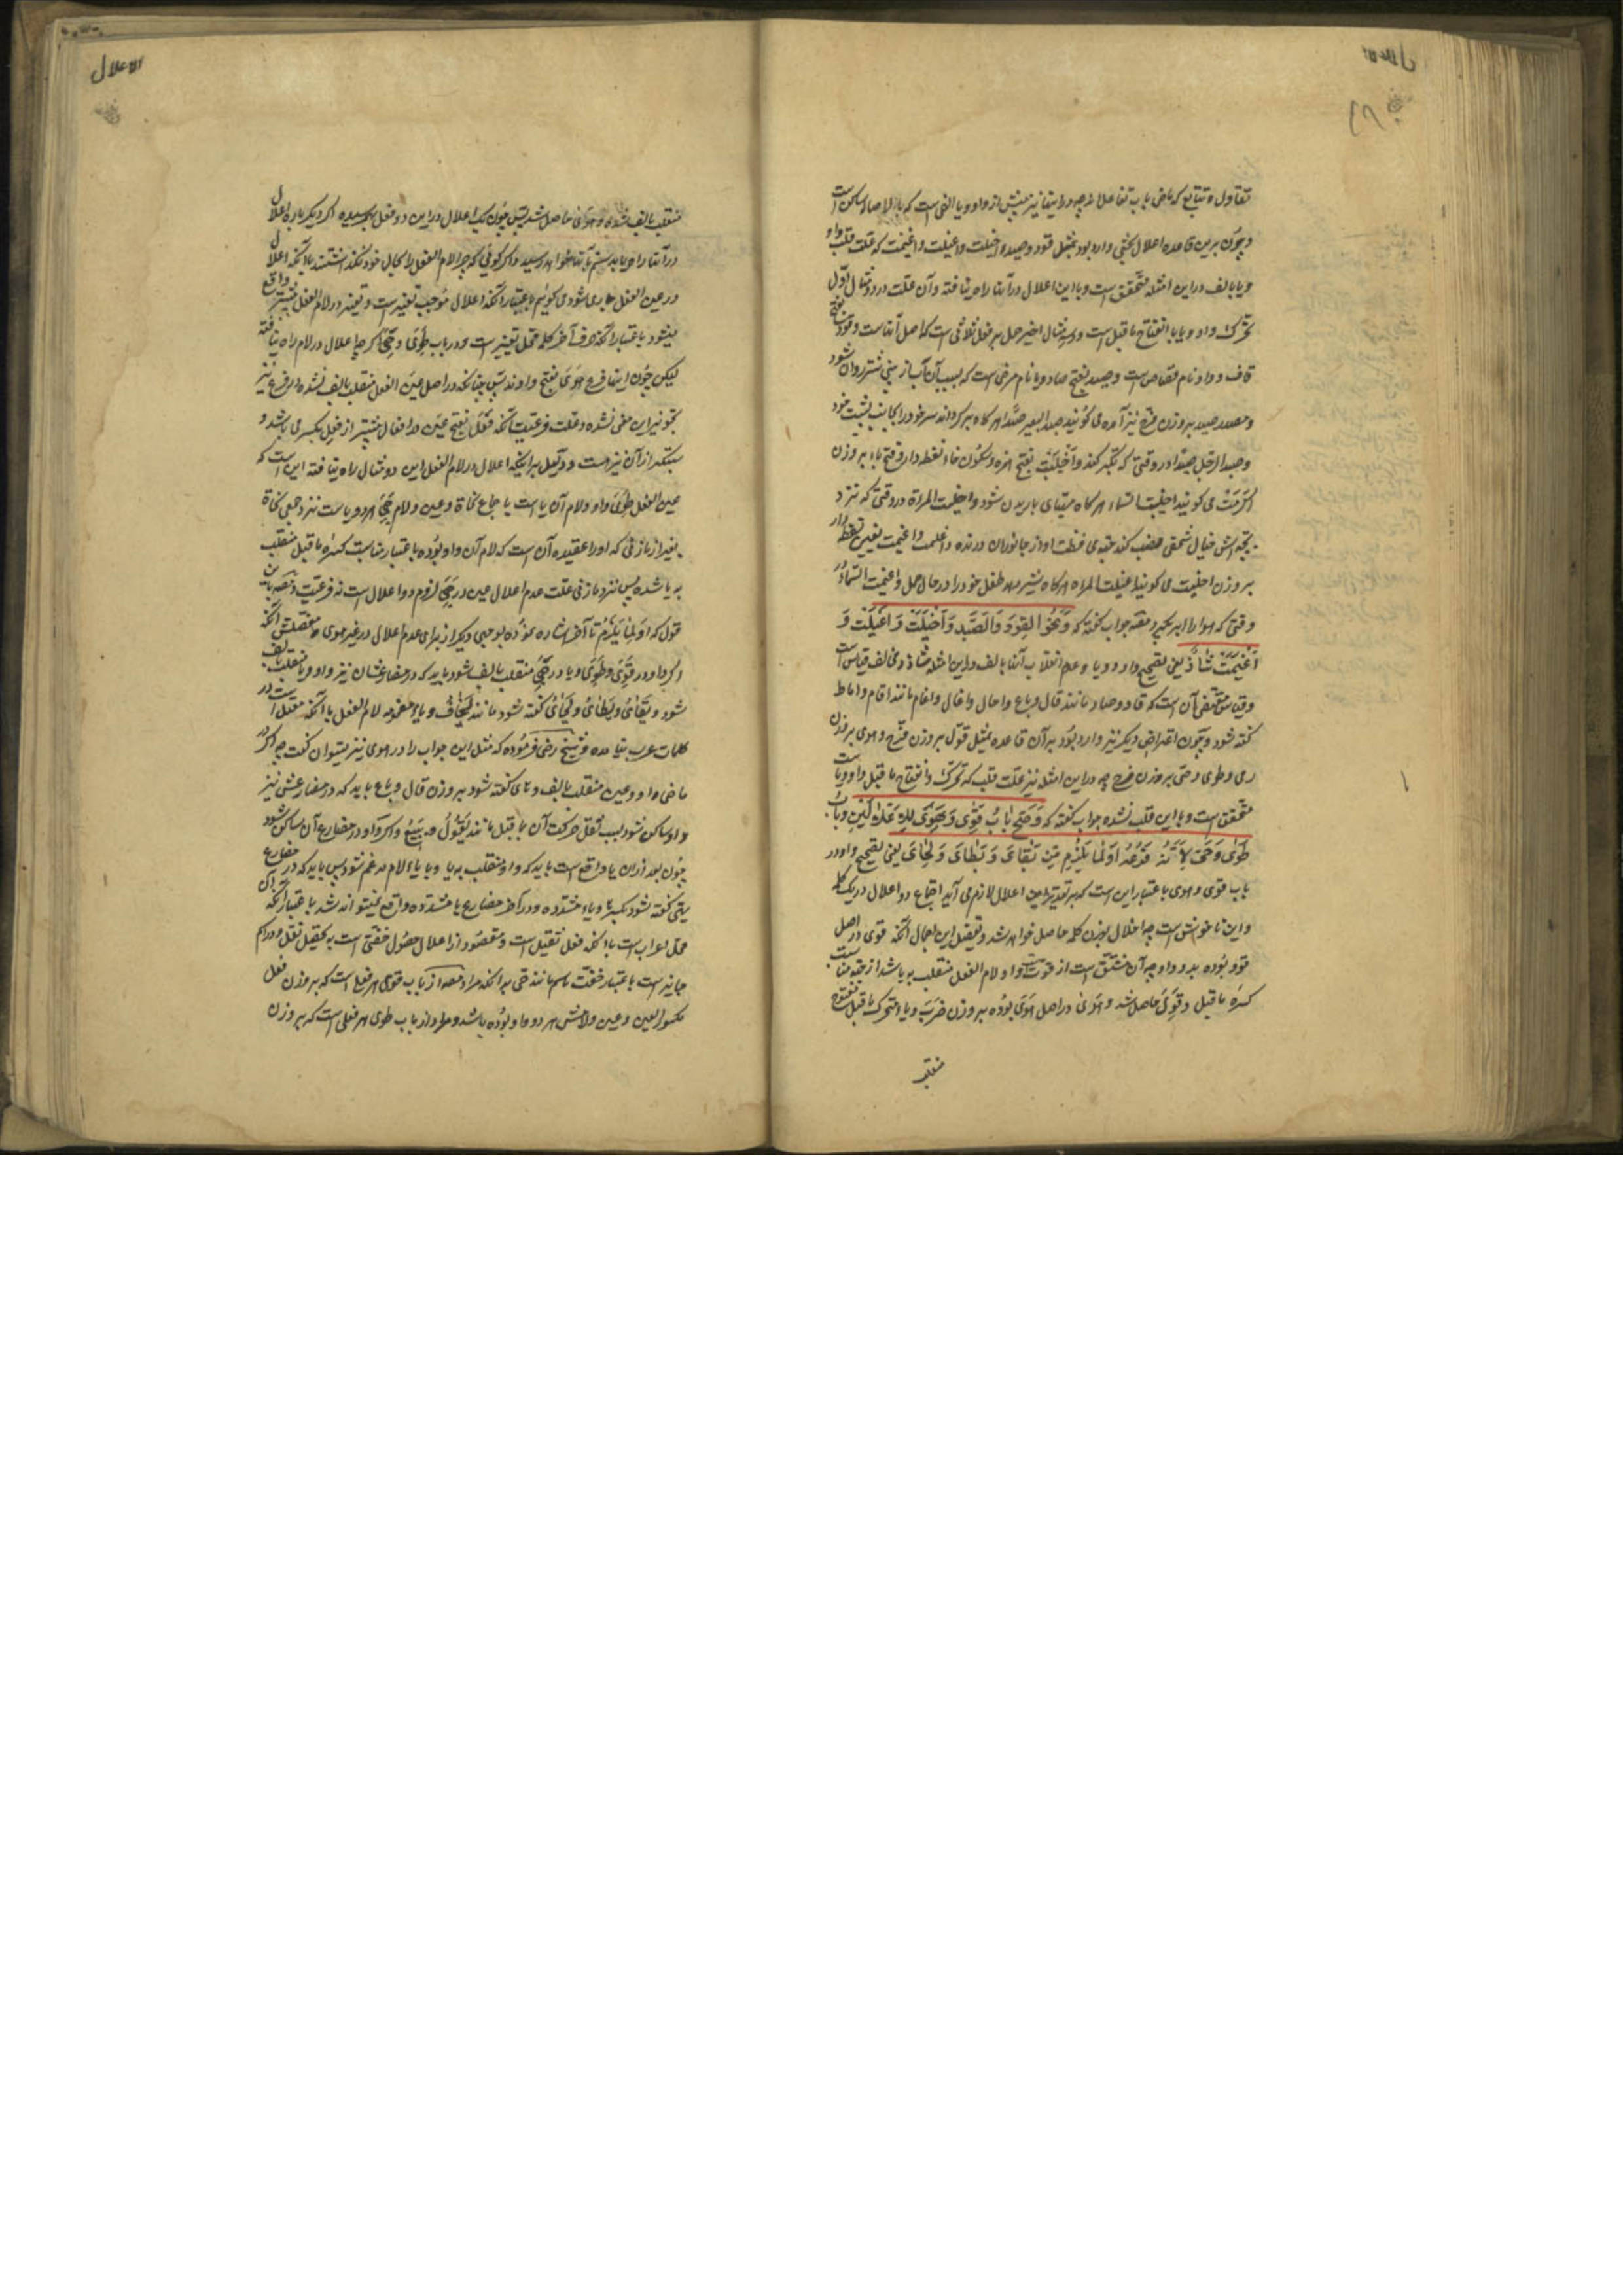 الاعلال
تقاول و تبایع که ماضی باب تفاعل‌اند چه در اینها نیز پیش از واو و یا الفی است که بالاصاله ساکن است
و چون برین قاعده اعلال بحثی وارد بود بمثل قود و صید و اخیلت و اغیلت و اغیمت که علت قلب واو
و یا بالف در این امثله متحقق است و با این اعلال در آنها راه نیافته و آن علت در دو مثال اوّل
تحرک واو و یا با انفتاح ماقبل است و در سه مثال اخیر حمل بر فعل ثلاثی است که اصل آنهاست و قود بفتح
قاف و واو نام قصاص است و صید بفتح صاد و یا نام مرضی است که بسبب آن آب از بینی شتر روان شود
و مصدر صید بر وزن فرح نیز آمده می گویند صید البعیر صیدا هر گاه بر گرداند سر خود را بجانب پشت خود
و صید الرجل صیدا در وقتی که تکبر کند و اخیلت بفتح همزه و سکون خاء نقطه دار و فتح یاء بر وزن
اکرمت می گویند اخیلت السماء هر گاه مهیای باریدن شود و اخیلت المراة در وقتی که نزد
بچه اش خیال شخصی نصب کند بجهة محافظت او از جانوران درنده و اغیلت و اغیمت بغین نقطه دار
بر وزن اخیلت می گویند اغیلت المراه هر گاه شیر دهد طفل خود را در حال حمل و اغیمت السماء در
وقتی که هوا را ابر بگیرد مصنف جواب گفته که وَنَحْوُ القَوَدِ وَالصَّیَدِ وَاَخْیَلَتْ وَاَغْیَلَتْ وَ
اَغْیَمَتْ شَاذٌّ یعنی تصحیح واو و یا و عدم انقلاب آنها بالف در این امثله شاذ و مخالف قیاس است
و قیاس مقتضی آن است که قاد و صاد مانند قال و باع و اخال و اغال و اغام مانند اقام و اماط
گفته شود و چون اعتراض دیگر نیز وارد بود بر آن قاعده بمثل قوی بر وزن فرح و هوی بر وزن
رمی و طوی و حیی بر وزن فرح چه در این امثله نیز علت قلب که تحرک و انفتاح ماقبل واو و یا است
متحقق است و با این قلب نشده جواب گفته که وَصَحَّ بَابُ قَوِیَ وَهَوَی لِلْاِعْلَالَیْنِ وَبَابُ
طَوِیَ وَحَیِیَ لِاَنَّهُ فَرْعُهُ اَوْ لِمَا یَلْزَمُ مِنْ یَقَایُ وَیَطَایُ وَیَحَایُ یعنی تصحیح واو در
باب قوی و هوی باعتبار این است که بر تقدیر این اعلال لازم می آید اجتماع دو اعلال در یک کلمه
و این ناخوش است چه اخلال بوزن کلمه حاصل خواهد شد و تفصیل این اجمال آنکه قوی در اصل
قوو بوده بدو واو چه آن مشتق است از قوت و واو لام الفعل منقلب به یا شد از جهة مناسبت
کسره ماقبل و قوی حاصل شد و هوی در اصل هوی بوده بر وزن ضرب و یاء متحرک ماقبل مفتوح
منقلب
الاعلال
منقلب بالف شده و هوی حاصل شد پس چون یک اعلال در این دو فعل بهم رسیده اگر دیگر باره اعلال
در آنها راه یابد ستم بآنها خواهد رسید و اگر گوئی که چرا لام الفعل را بحال خود نگذاشتند با آنکه اعلال
در عین الفعل جاری شود می گویم باعتبار آنکه اعلال موجب تغییر است و تغییر در لام الفعل بیشتر واقع
میشود باعتبار آنکه حرف آخر کلمه محل تغییر است و در باب طوی و حیی اگر چه اعلال در لام راه نیافته
لیکن چون اینها فرع هوی بفتح واوند پس چنانکه در اصل عین الفعل منقلب بالف نشده در فرع نیز
تجویز این معنی نشده و علت فرعیت آنکه فعل بفتح عین در افعال بیشتر از فعل بکسر می باشد و
سبکتر از آن نیز هست و دلیل بر اینکه اعلال در لام الفعل این دو مثال راه نیافته این است که
عین الفعل طوی واو و لام آن یا است باجماع نحاة و عین و لام حیی هر دو یا ست نزد جمیع نحاة
بغیر از مازنی که او را عقیده آن است که لام آن واو بوده باعتبار مناسبت کسره ماقبل منقلب
به یا شده پس نزد مازنی علت عدم اعلال عین در حیی لزوم دو اعلال است نه فرعیت و مصنف باین
قول که او لما یلزم تا آخر اشاره نموده بوجهی دیگر از برای عدم اعلال در غیر هوی و مفصلش آنکه
اگر واو در قوی و طوی و یا در حیی منقلب بالف شود باید که در مضارعشان نیز واو و یا منقلب بالف
شود و یقای و یطای و یحای گفته شود مانند یخاف و یاء مضمومه لام الفعل با آنکه معتل است در
کلمات عرب نیامده و شیخ رضی فرموده که مثل این جواب را در هوی نیز میتوان گفت چه اگر در
ماضی واو و عین منقلب بالف و های گفته شود بر وزن قال و باع باید که در مضارعش نیز
واو ساکن شود بسبب نقل حرکت آن بماقبل مانند یقول و یبیع و اگر واو در مضارع آن ساکن شود
چون بعد از آن یا واقع است باید که واو منقلب به یا و یا یاء لام مدغم شود پس باید که در مضارع
یهی گفته شود بکسر ها و یاء مشدده و در آخر مضارع یا مشدده واقع نمیتواند شد باعتبار آنکه آن
محل اعراب است با آنکه فعل ثقیل است و مقصود از اعلال حصول خفتی است نه تحصیل ثقل و در اسم
جایز است باعتبار خفت اسم مانند حی بدانکه مراد مصه از باب قوی هر فعلی است که بر وزن فعل
مکسور العین و عین و لامش هر دو واو بوده باشد و مراد از باب طوی هر فعلی است که بر وزن